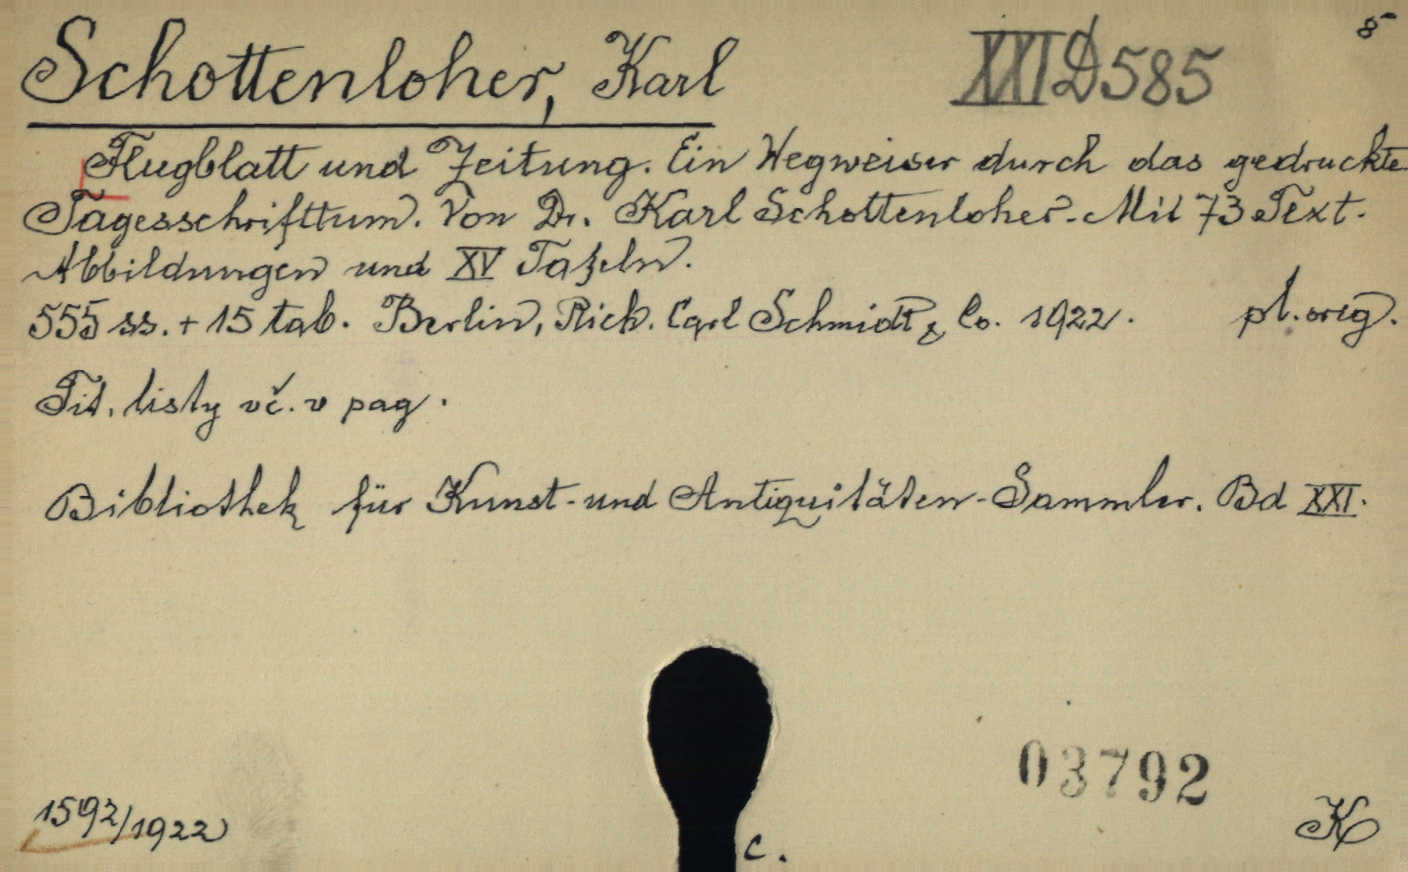 8
Schottenloher, Karl XXI D 585
Flugblatt und Zeitung. Ein Wegweiser durch das gedruckte
Tagesschrifttum. Von Dr. Karl Schottenloher. Mit 73 Text-
Abbildungen und XV Tafeln.
555 ss. + 15 tab. Berlin, Rich. Carl Schmidt & Co. 1922. pl. orig.
Tit. listy vč. v pag.
Bibliothek für Kunst- und Antiquitäten-Sammler. Bd XXI.
03792
1592/1922
K
c.